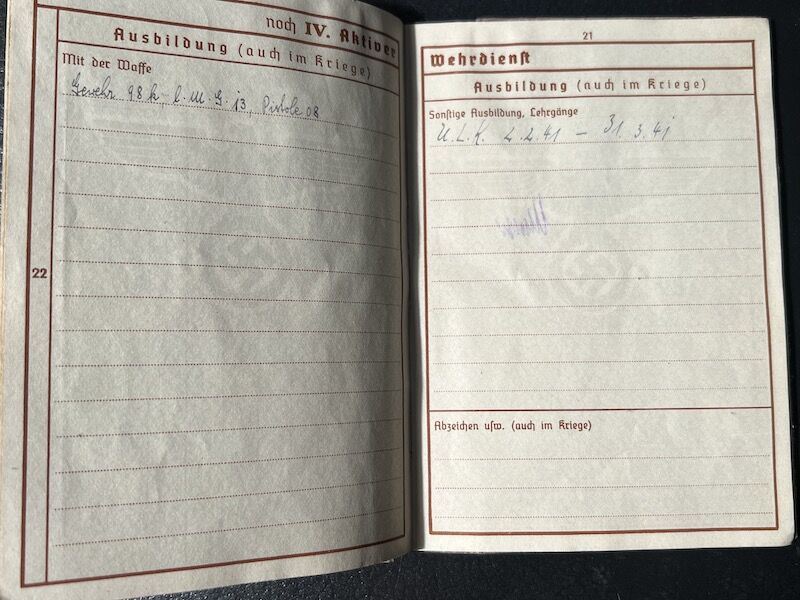 noch IV. Aktiver
Ausbildung (auch im Kriege)
Mit der Waffe
Gewehr 98 k l. M. G. 13, Pistole 08
22
21
Wehrdienst
Ausbildung (auch im Kriege)
Sonstige Ausbildung, Lehrgänge
U. L. K. 2. 2. 41 – 31. 3. 41
Abzeichen usw. (auch im Kriege)